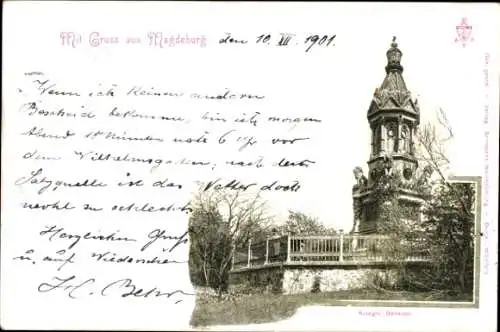 Mit Gruss aus Magdeburg
den 10. XII. 1901.
Wenn ich keinen andern
Bescheid bekomme, bin ich morgen
Abend 10 Minuten nach 6 Uhr vor
dem Wilhelmsgarten, nach der
Salzquelle ist das Wetter doch
wohl zu schlecht.
Herzlichen Gruß
u. auf Wiedersehen
Kriegr. Denkmal